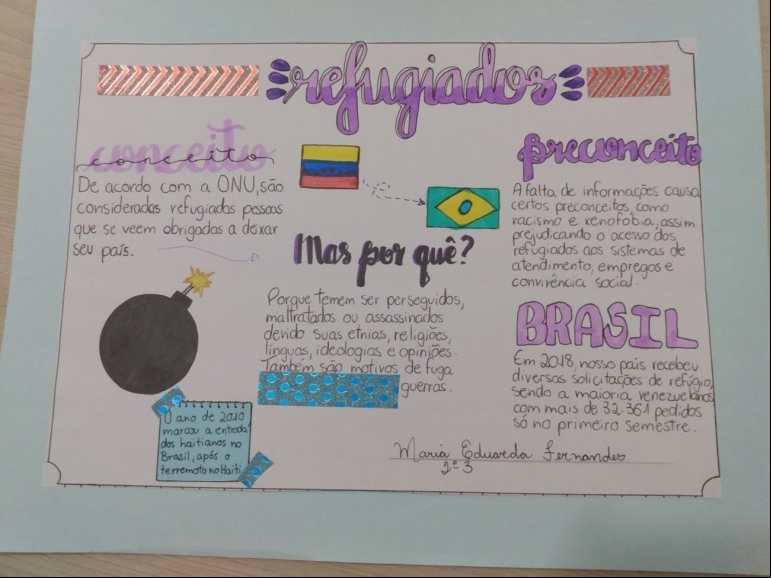 refugiados
conceito
De acordo com a ONU, são
consideradas refugiadas pessoas
que se veem obrigadas a deixar
seu país.
Mas por quê?
Porque temem ser perseguidos,
maltratados ou assassinados
devido suas etnias, religiões,
línguas, ideologias e opiniões.
Também são motivos de fuga
guerras.
O ano de 2010
marcou a entrada
dos haitianos no
Brasil, após o
terremoto no Haiti
preconceito
A falta de informações causa
certos preconceitos, como
racismo e xenofobia, assim
prejudicando o acesso dos
refugiados aos sistemas de
atendimento, empregos e
convivência social.
BRASIL
Em 2018, nosso país recebeu
diversas solicitações de refúgio,
sendo a maioria venezuelanos
com mais de 32.361 pedidos
só no primeiro semestre.
Maria Eduarda Fernandes
2º 3